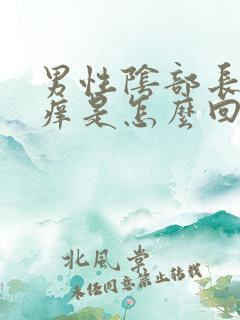 男性陰部長
痒是怎麼回
北風堂
未经同意禁止转载